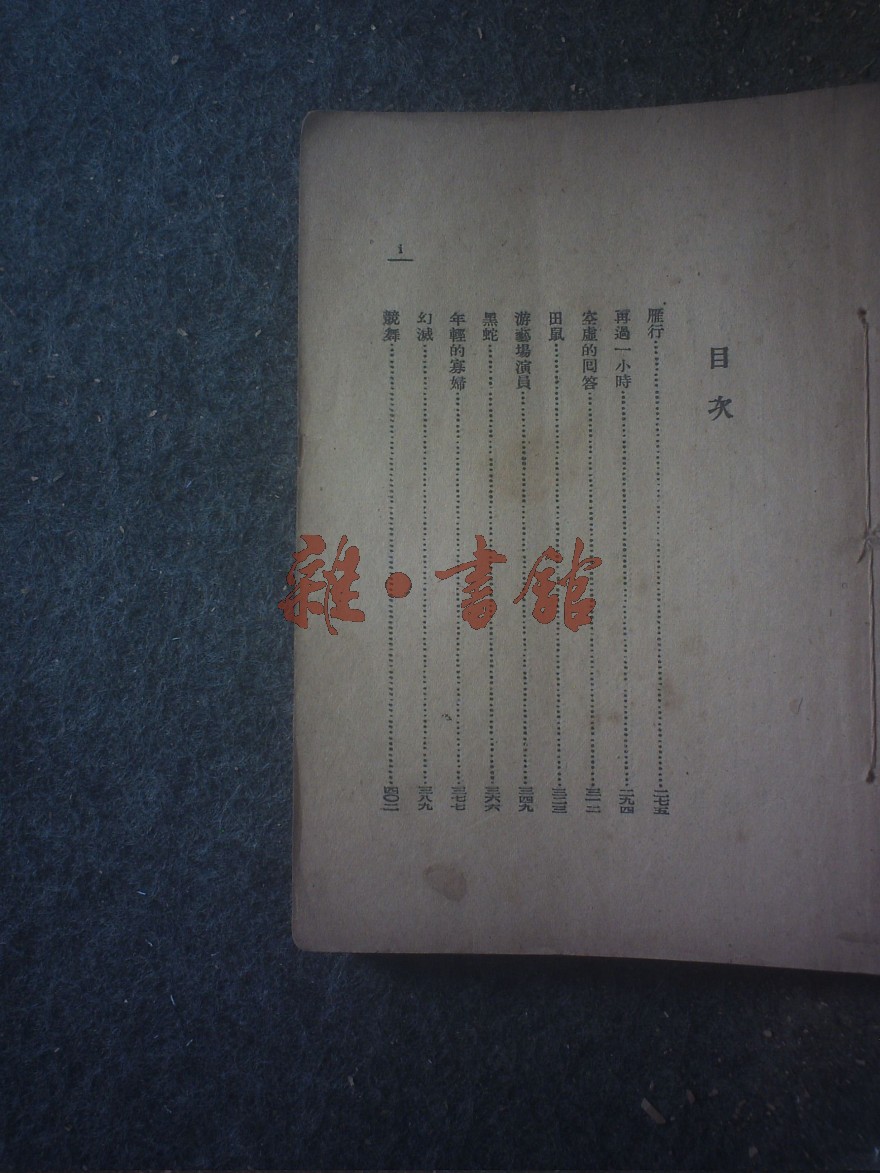 目次
雁行……二七五
再過一小時……二九四
空虛的囘答……三一二
田鼠……三二三
游藝場演員……三四九
黑蛇……三六六
年輕的寡婦……三七七
幻滅……三八九
競舞……四〇二
1
雜·書館